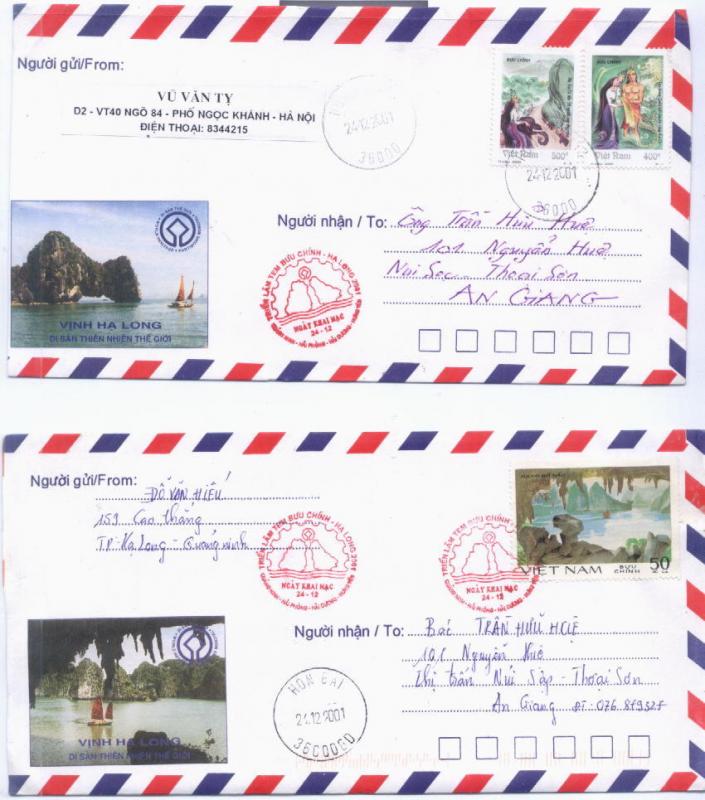 Người gửi/From:
VŨ VĂN TỴ
D2 - VT40 NGÕ 84 - PHỐ NGỌC KHÁNH - HÀ NỘI
ĐIỆN THOẠI: 8344215
24.12.2001
36000
BƯU CHÍNH
Việt Nam 500đ
BƯU CHÍNH
Việt Nam 400đ
24.12.2001
36000
Người nhận / To: Ông Trần Hữu Huệ
101 Nguyễn Huệ
Núi Sập - Thoại Sơn
AN GIANG
TRIỂN LÃM TEM BƯU CHÍNH - HẠ LONG 2001
NGÀY KHAI MẠC
24 - 12
QUẢNG NINH - HẢI PHÒNG - HẢI DƯƠNG - HƯNG YÊN
VỊNH HẠ LONG
DI SẢN THIÊN NHIÊN THẾ GIỚI
Người gửi/From:
ĐỖ VĂN HIẾU
159 Cao Thắng
TP. Hạ Long - Quảng Ninh
TRIỂN LÃM TEM BƯU CHÍNH - HẠ LONG 2001
NGÀY KHAI MẠC
24 - 12
QUẢNG NINH - HẢI PHÒNG - HẢI DƯƠNG - HƯNG YÊN
TRIỂN LÃM TEM BƯU CHÍNH - HẠ LONG 2001
NGÀY KHAI MẠC
24 - 12
QUẢNG NINH - HẢI PHÒNG - HẢI DƯƠNG - HƯNG YÊN
VIỆT NAM BƯU CHÍNH 50 XU
Người nhận / To: Bác TRẦN HỮU HUỆ
101 Nguyễn Huệ
Thị trấn Núi Sập - Thoại Sơn
An Giang ĐT: 076.879327
HON GAI
24.12.2001
3600000
VỊNH HẠ LONG
DI SẢN THIÊN NHIÊN THẾ GIỚI